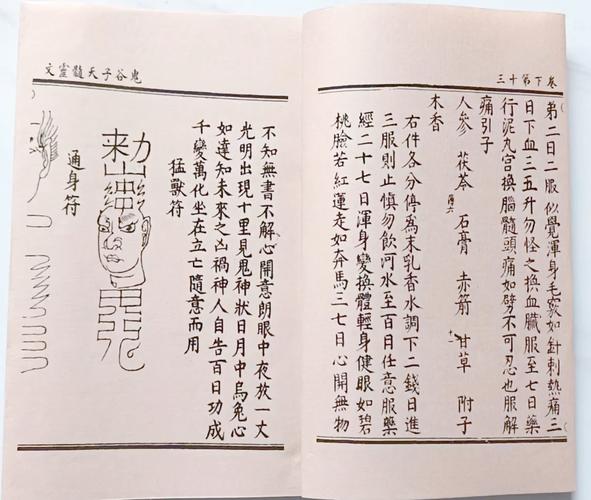 卷下第十三
弟二日二服似覺渾身毛竅如針刺熱痛三
日下血三五升勿怪之換血臟服至七日藥
行泥丸宮換腦髓頭痛如劈不可忍也服解
痛引子
人參 茯苓 石膏 赤箭 甘草 附子
木香
右件各分停為末乳香水調下二錢日進
三服則止慎勿飲河水至百日任意服藥
經二十七日渾身變換體輕身健眼如碧
桃臉若紅蓮走如奔馬三七日心開無物
鬼谷子天髓靈文
不知無書不解心開意朗眼中夜放一丈
光明出現十里見鬼神狀日月中烏兔心
如達知未來之凶禍神人自告百日功成
千變萬化坐在立亡隨意而用
猛獸符
勑
通身符